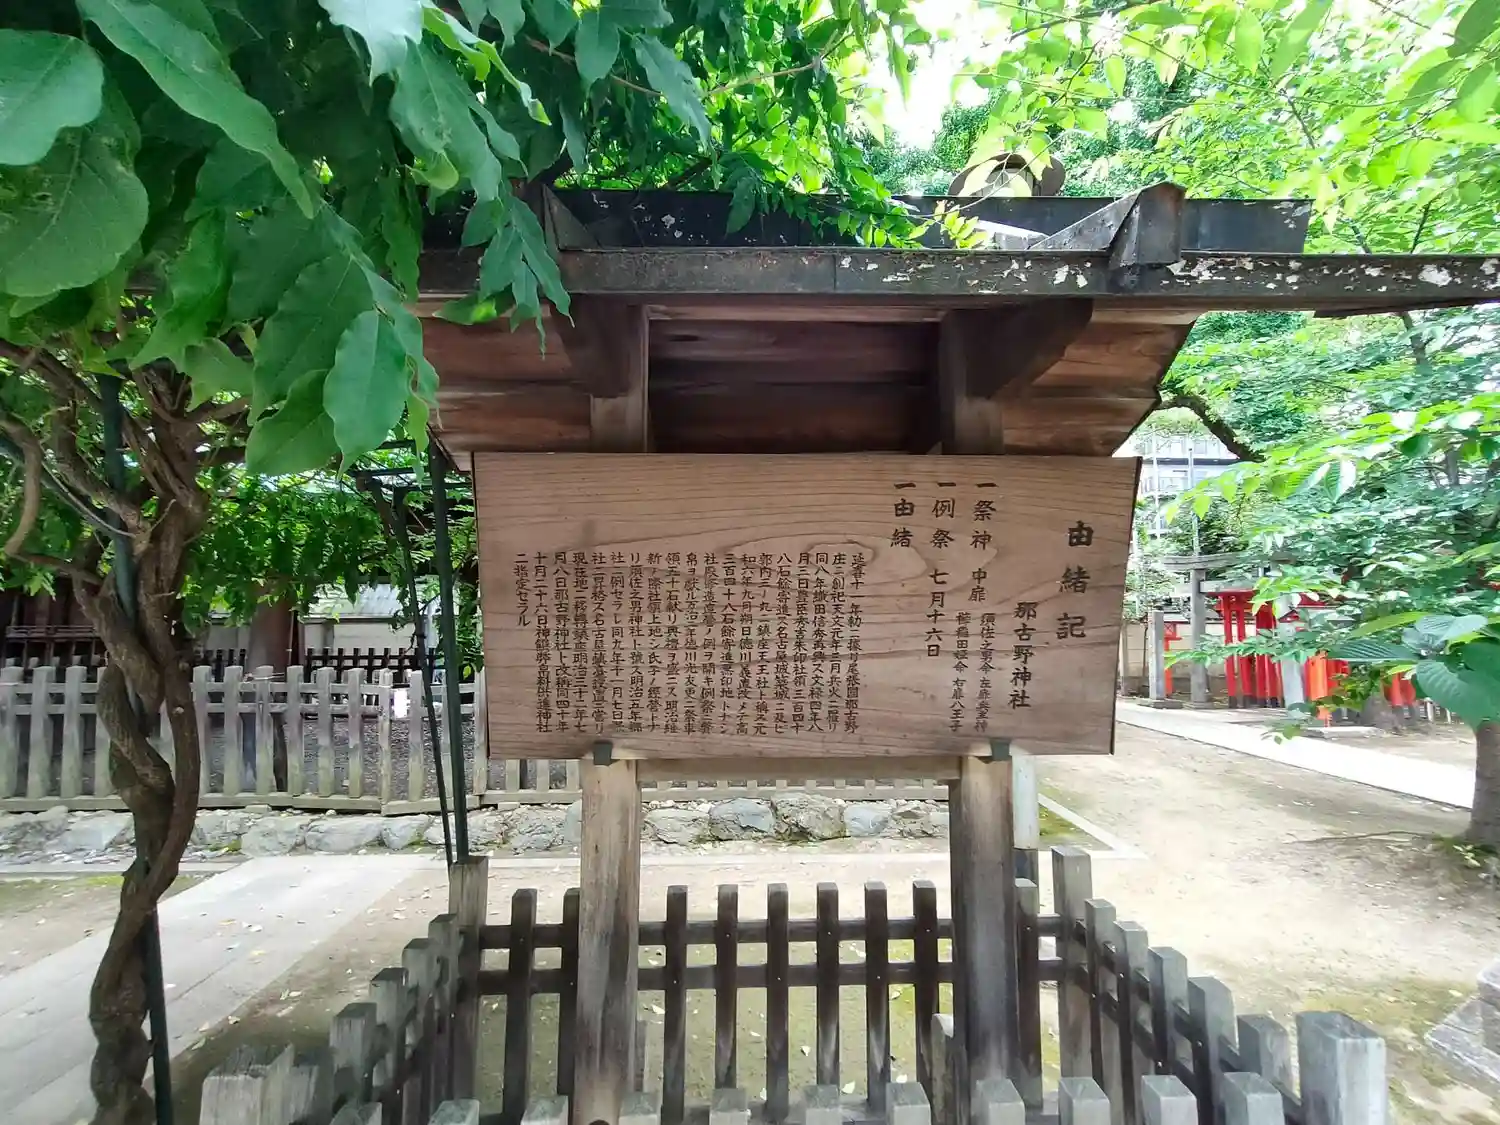 由緒記
那古野神社
一祭神 中扉 須佐之男命 左扉 奇稲田姫命 右扉 八王子
一例祭 七月十六日
一由緒
延喜十一年初メ勅 尾張国那古野
庄ニ創祀天文元年三月兵火ニ罹リ
同八年織田信秀再興ス文禄四年八
月三日豊臣秀吉朱印社領三百四十
八石餘寄進ス名古屋城築城ニ及ビ
郭内三ノ丸ニ鎮座天王社ト称ス元
和六年九月朔日徳川義直改メテ高
三百四十八石餘寄進黒印地トナシ
社殿修造遷宮ノ例ヲ開キ例祭ニ奏
帛ヲ献ル万治二年徳川光友更ニ祭車
領三十石献リ興禮ヲ盛ニス明治維
新ノ際社領上地シ氏子ノ経営トナ
リ須佐之男神社ト號ス明治五年郷
社ニ列セラレ同九年十一月七日県
社ニ昇格ス名古屋鎮臺設置ニ當リ
現在地ニ移轉鎮座明治三十二年七
月八日那古野神社ト改稱同四十年
十月二十六日神饌幣帛料供進神社
ニ指定セラル